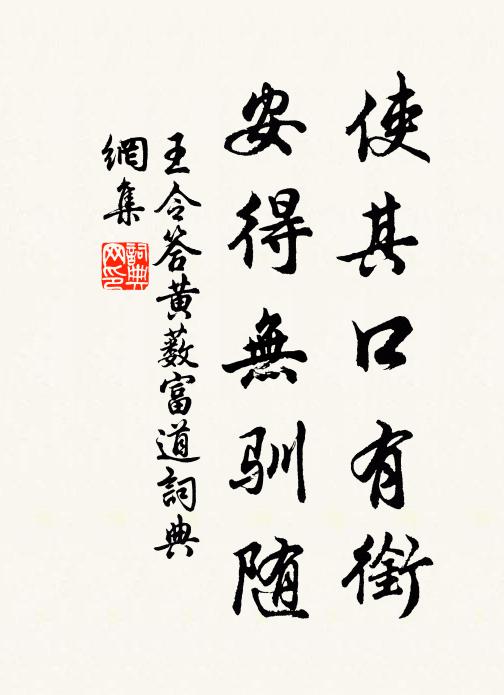 使其口有銜
安得無馴随
王令答黄藪富道詞典
網集
詞典
网印